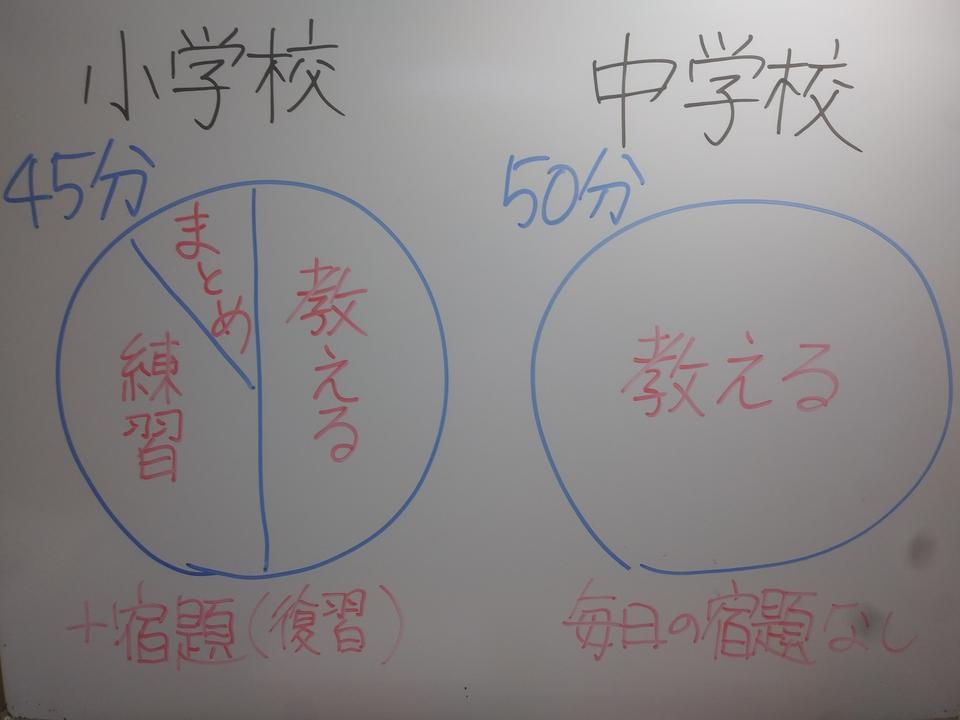 小学校
45分
教える
まとめ
練習
＋宿題(復習)
中学校
50分
教える
毎日の宿題なし